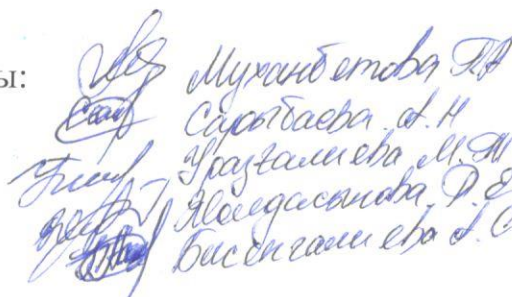 ы:
Муханбетова
Сарыбаева А.Н
Уразгалиева М.
Жолдасынова Д.Е
Бисенгалиева А.С